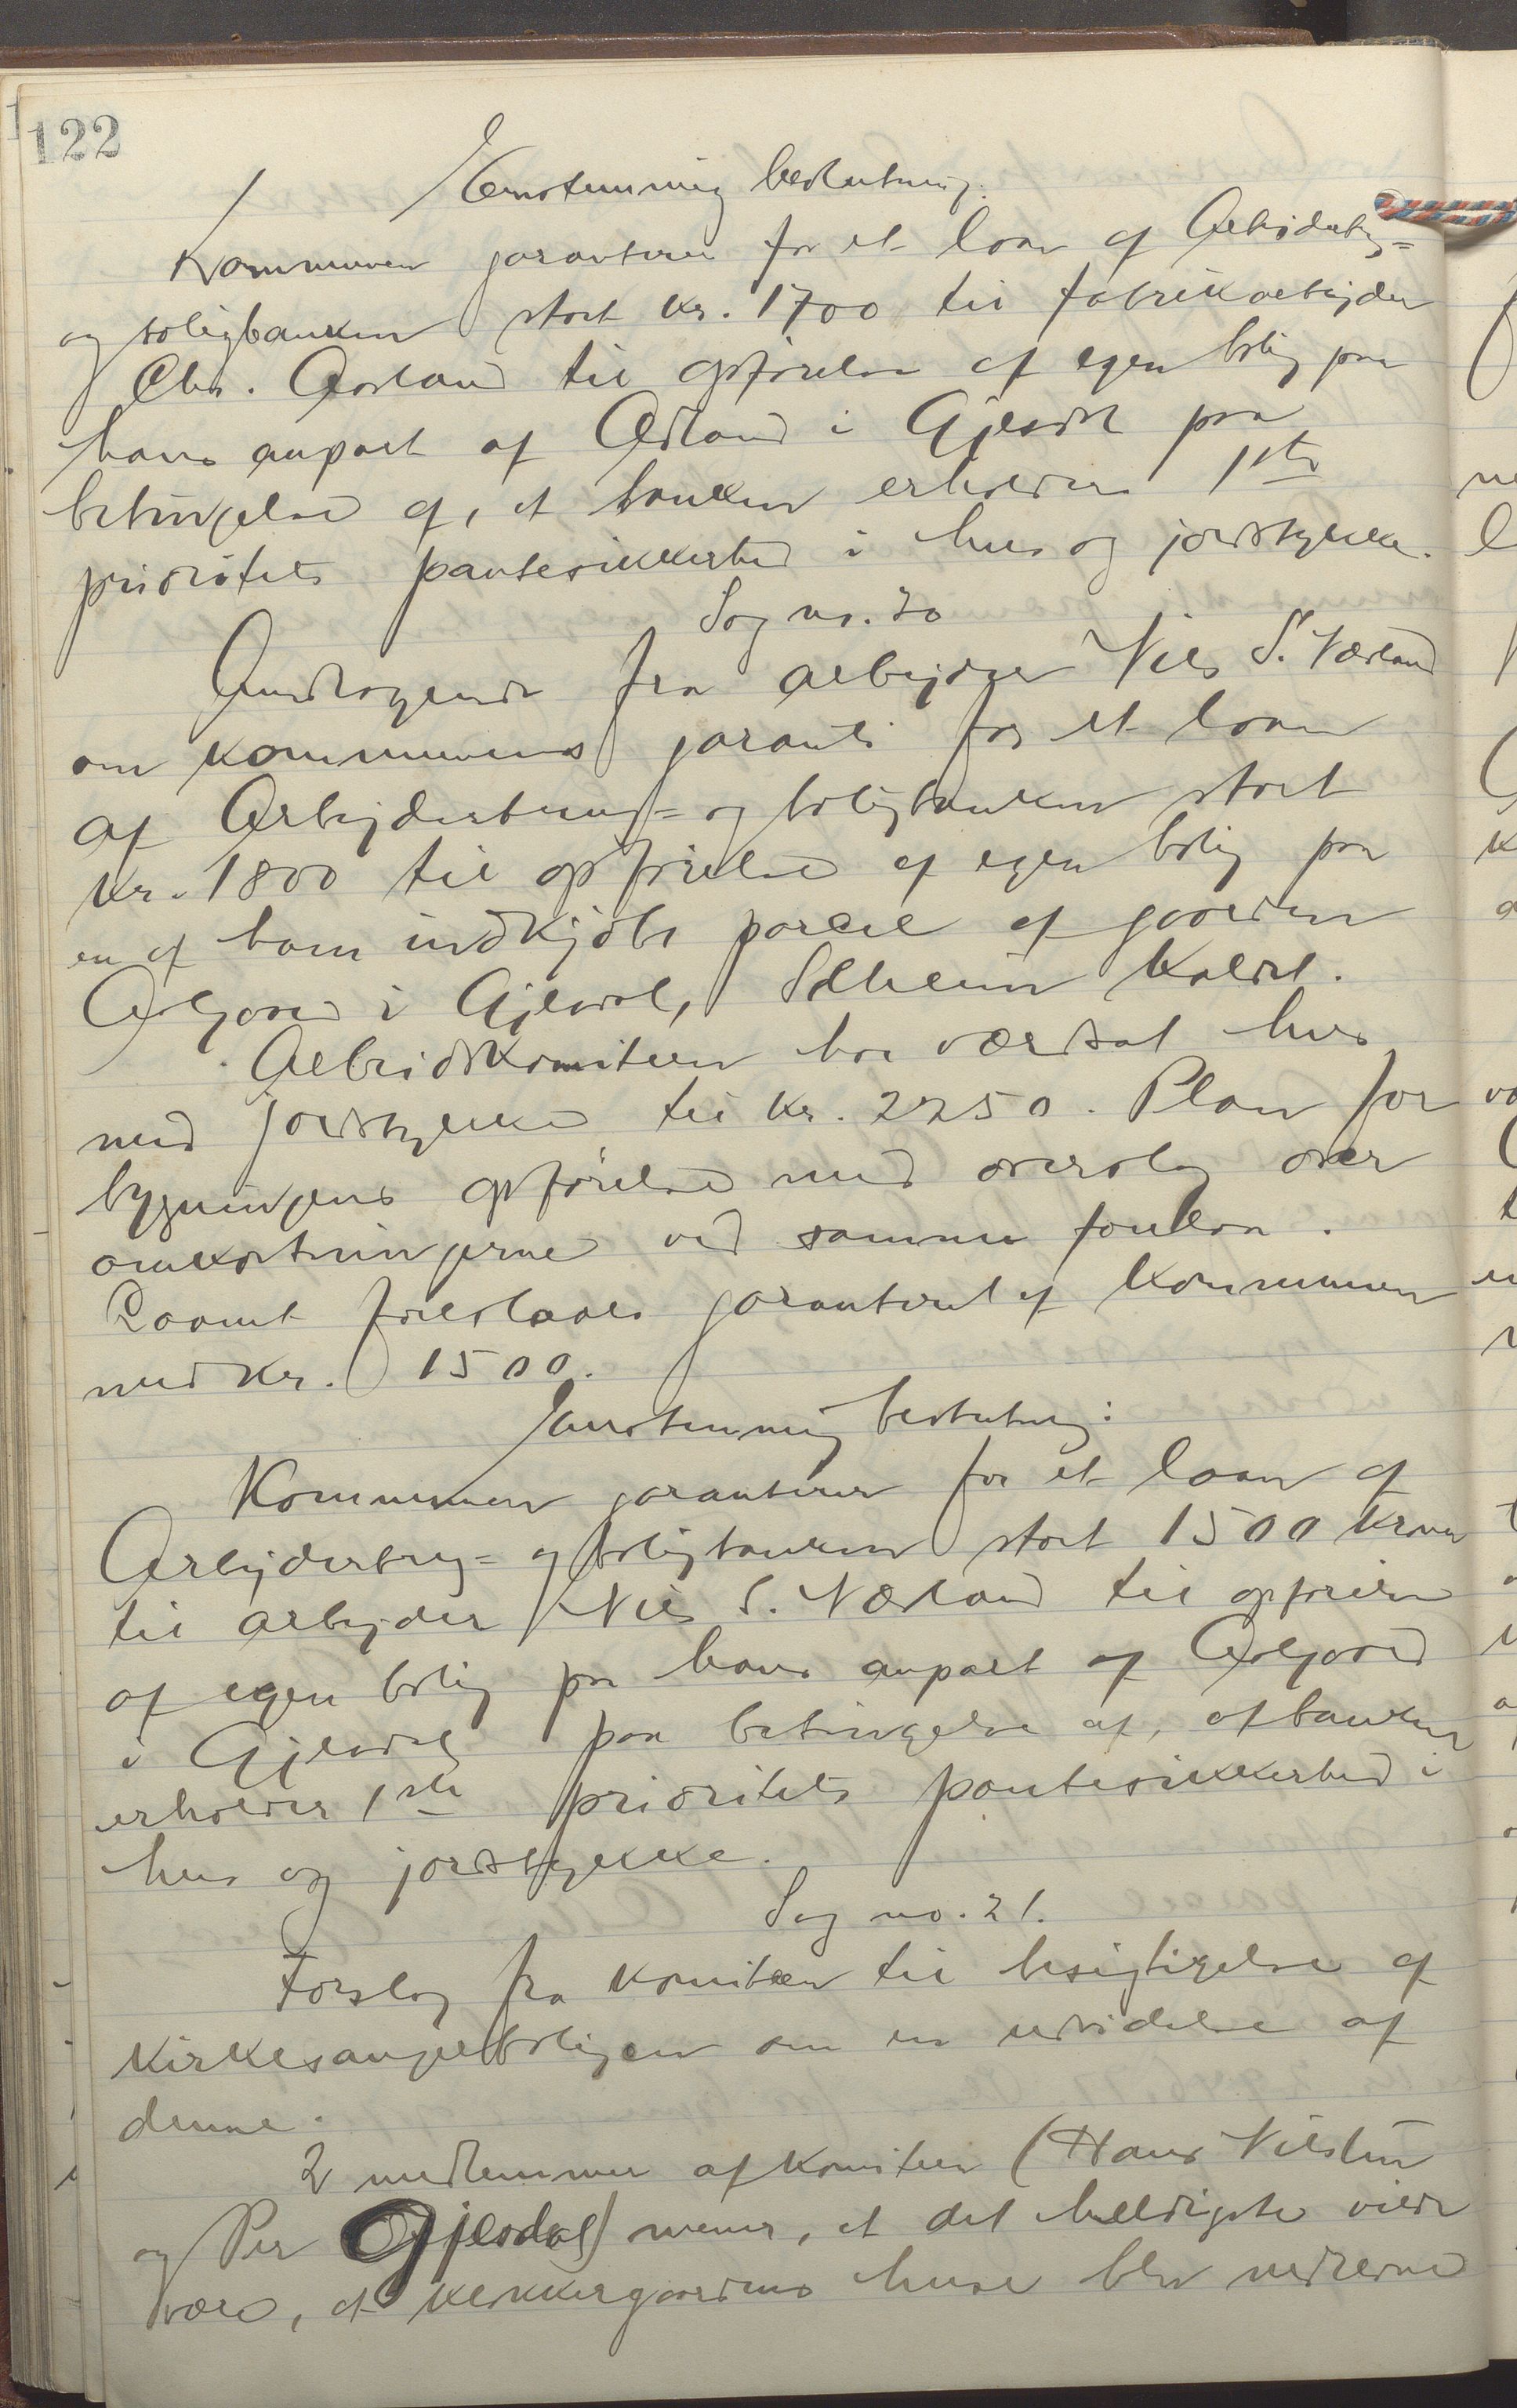 122
Enstemmig beslutning.
Kommunen garanterer for et laan af Arbeiderbrug=
og boligbanken stort kr. 1700 til fabrikarbejder
Chr. Aasland til opførelse af egen bolig paa
hans anpart af Ædland i Gjesdal paa
betingelse af, at banken erholder 1ste
prioritets pantesikkerhed i hus og jordstykke.
Sag no. 20
Andragende fra arbejder Nils S. Nærland
om kommunens garanti for et laan
af Arbejderbrug= og boligbanken stort
kr. 1800 til opførelse af egen bolig paa
en af ham indkjøbt parcel af gaarden
Aalgaard i Gjesdal, Solheim kaldet.
Arbeidskomiteen har værdsat hus
med jordstykke til kr. 2250. Plan for
bygningens opførelse med overslag over
omkostningerne ved samme forelaa.
Laanet foreslaaes garanteret af kommunen
med kr. 1500.
Enstemmig beslutning:
Kommunen garanterer for et laan af
Arbejderbrug= og boligbanken stort 1500 kroner
til arbejder Nils S. Nærland til opførelse
af egen bolig paa hans anpart af Aalgaard
i Gjesdal paa betingelse af, at banken
erholder 1ste prioritets pantesikkerhed i
hus og jordstykke.
Sag no. 21.
Forslag fra komiteen til besigtigelse af
kirkesangerboligen om en udvidelse af
denne.
2 medlemmer af komiteen (Hans
og Per Gjesdal) mener, at det heldigste vilde
være, at klokkergaardens huse blev nedrevne